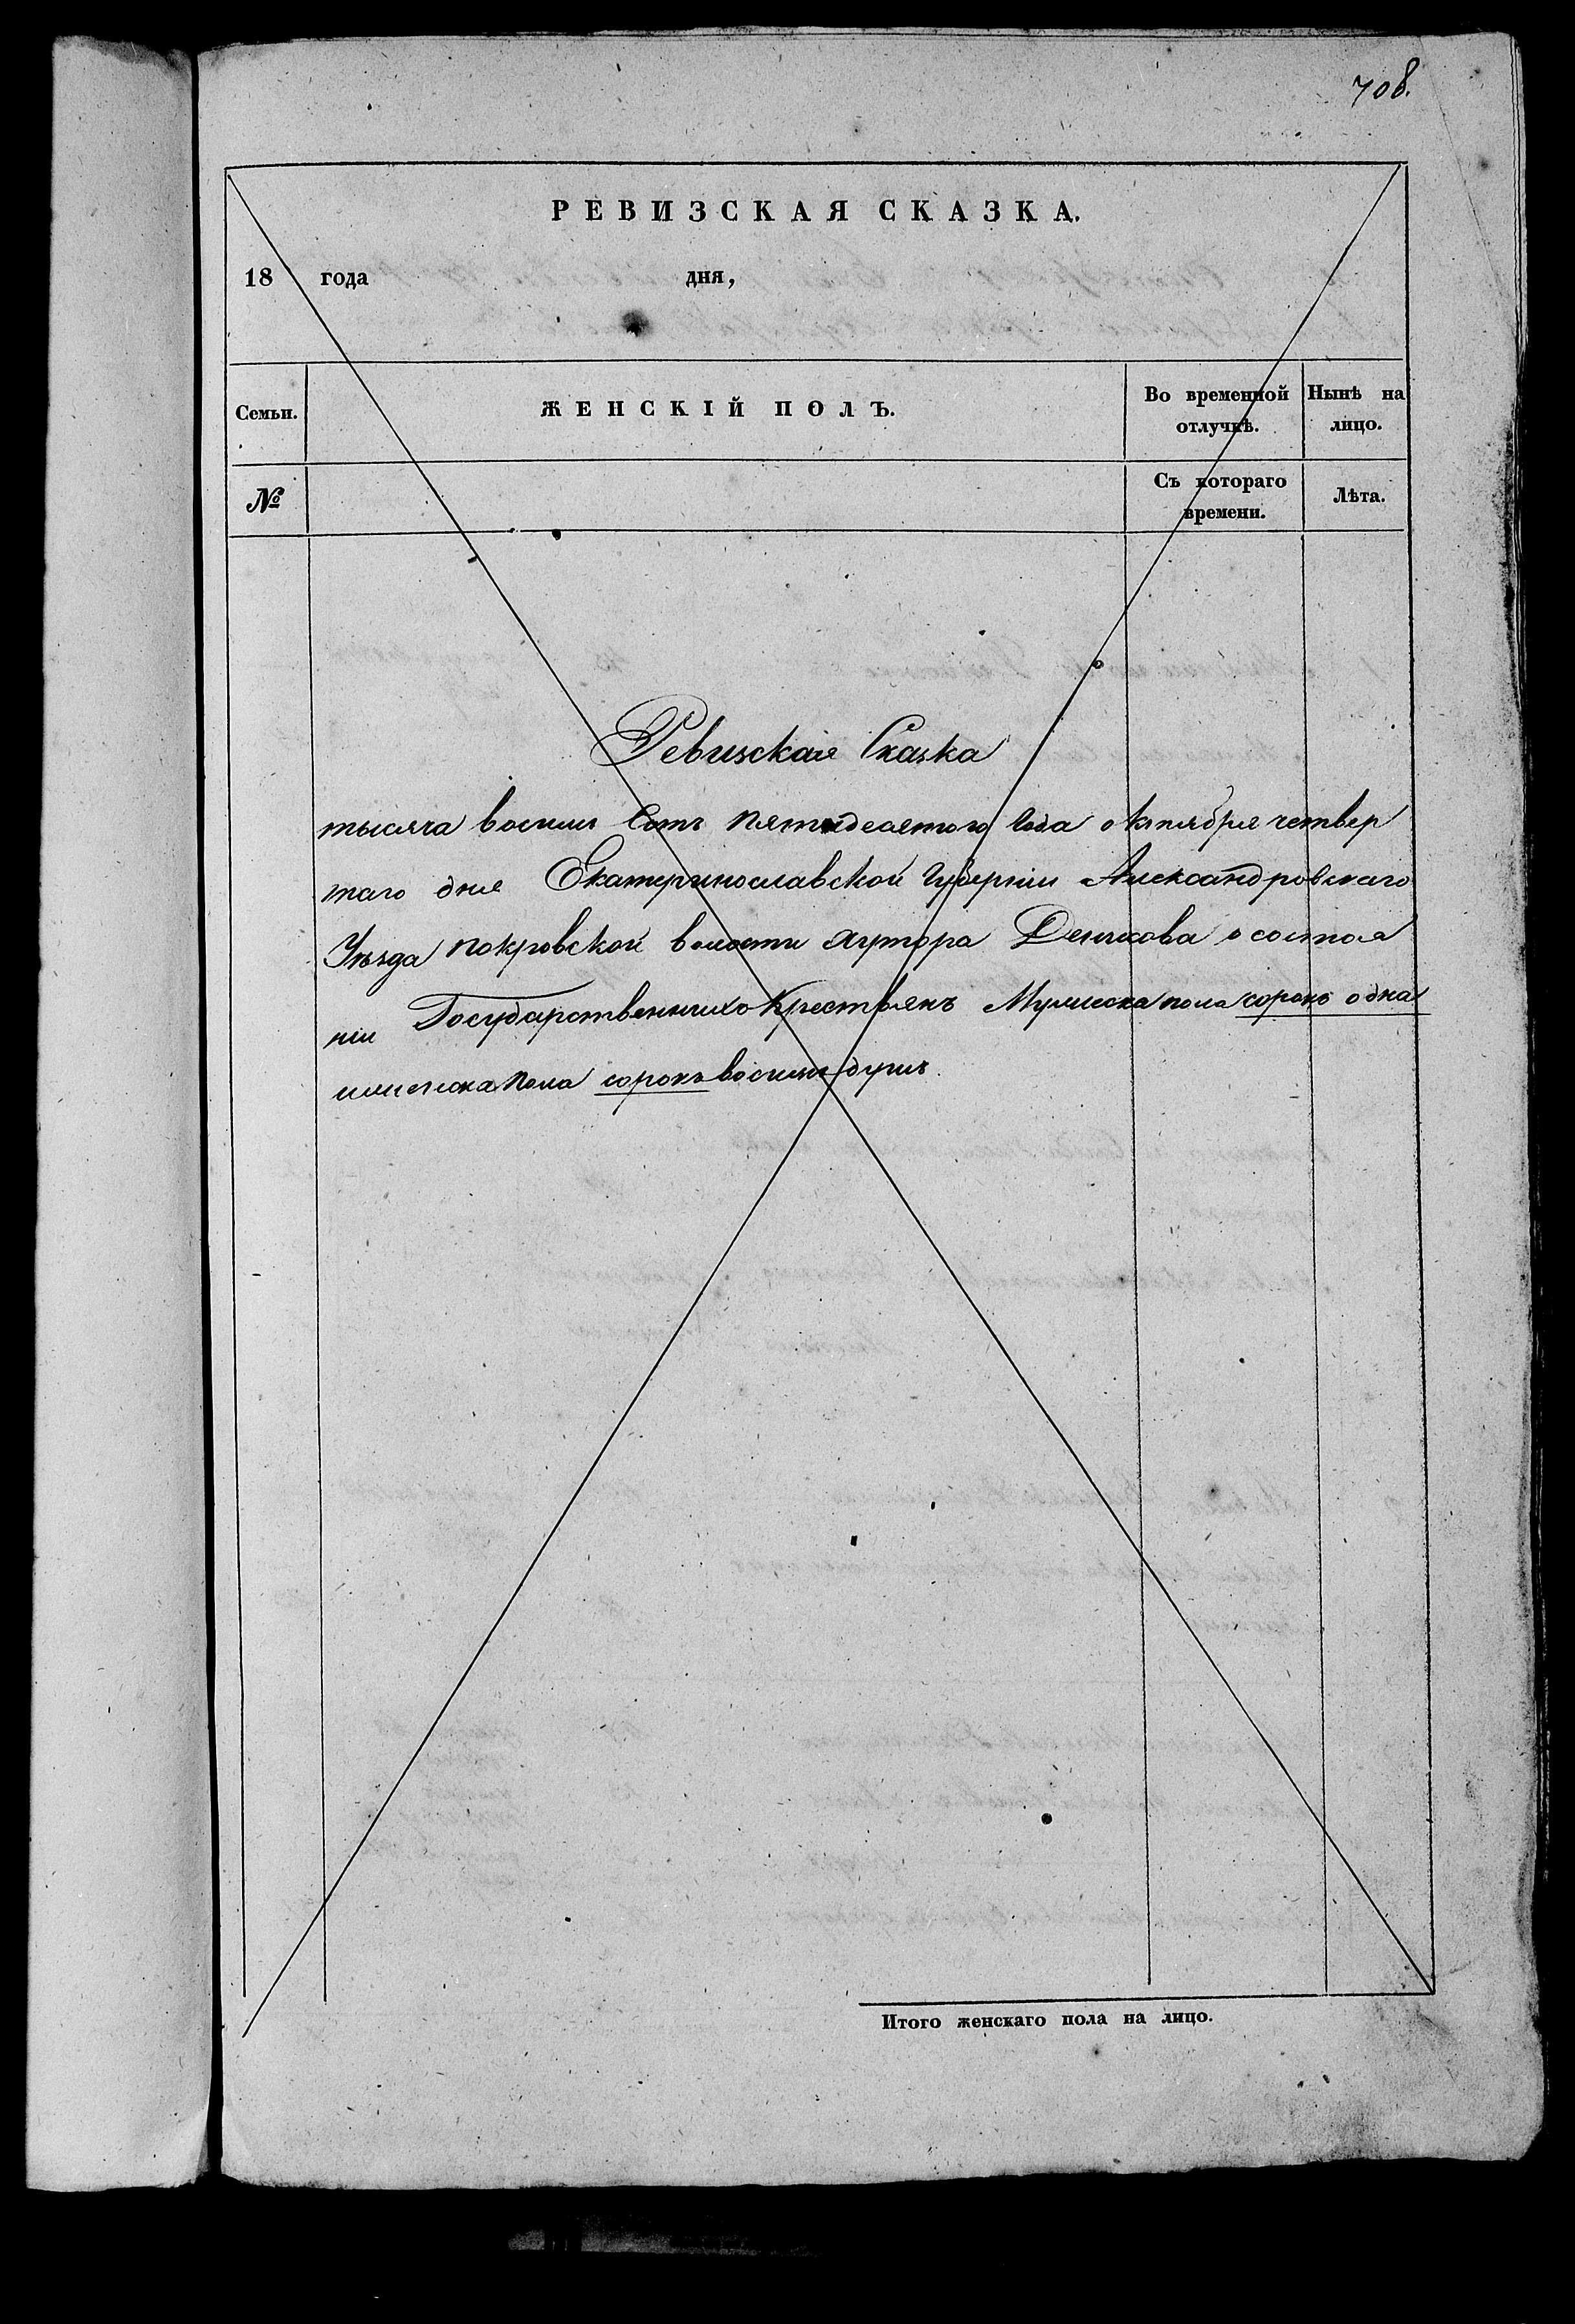 708.
РЕВИЗСКАЯ СКАЗКА.
18 года дня,
Семьи. ЖЕНСКІЙ ПОЛЪ. Во временной отлучкѣ. Нынѣ на лицо.
№ Съ котораго времени. Лѣта.
Ревизская Сказка
тысяча восимь Сотъ пятидесятого Года октября четвер
таго дня Екатеринославской Губерніи Александровскаго
Уѣзда покровской волости хутора о состоя
ніи Государственныхъ Крестьянъ Мужеска пола сорокъ одна
иженска пола сорокъ восимь душъ
Итого женскаго пола на лицо.